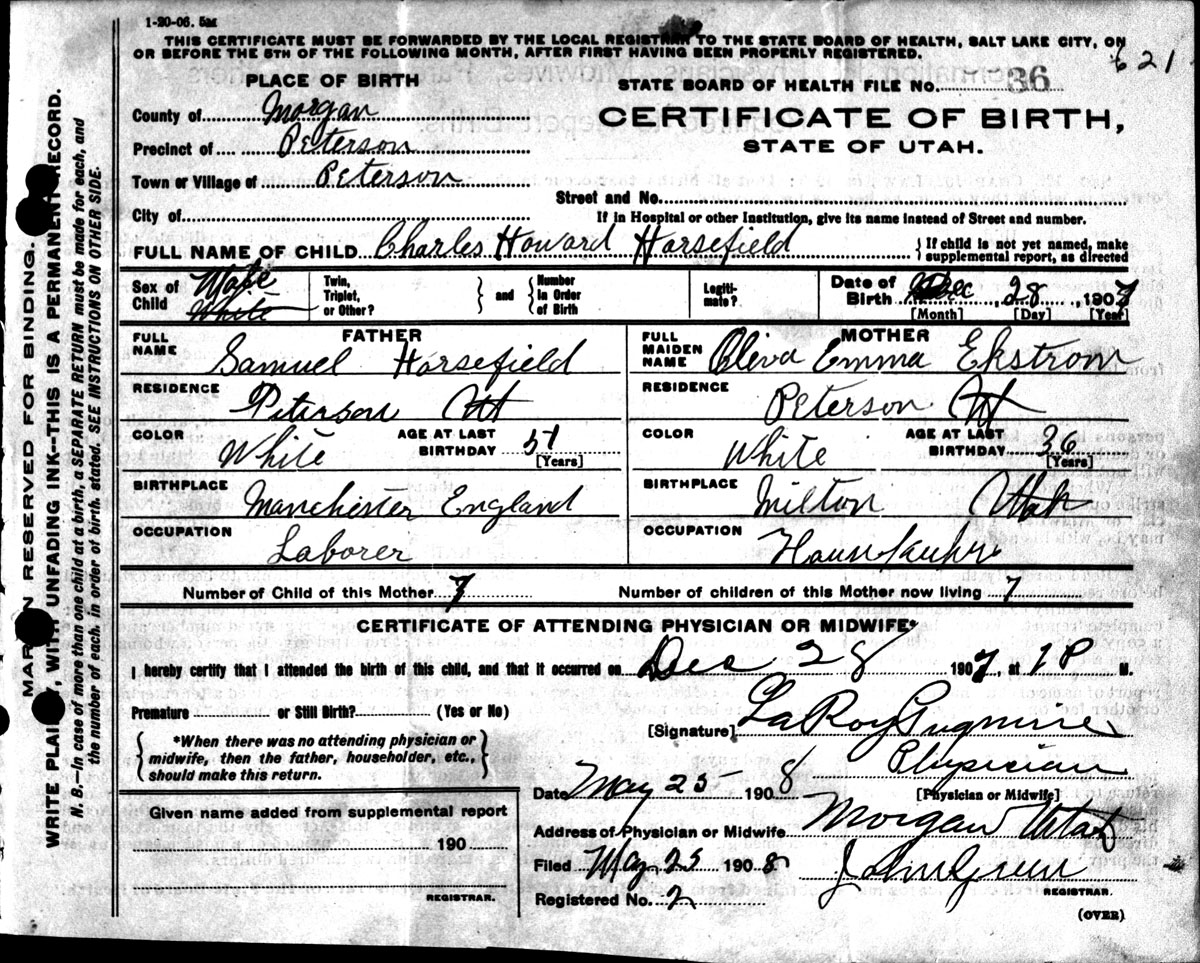 1-20-06. 5M
THIS CERTIFICATE MUST BE FORWARDED BY THE LOCAL REGISTRAR TO THE STATE BOARD OF HEALTH, SALT LAKE CITY, ON
OR BEFORE THE 5TH OF THE FOLLOWING MONTH, AFTER FIRST HAVING BEEN PROPERLY REGISTERED.
621
PLACE OF BIRTH
STATE BOARD OF HEALTH FILE NO. 36
County of Morgan
CERTIFICATE OF BIRTH,
Precinct of Peterson
STATE OF UTAH.
Town or Village of Peterson
Street and No.
City of
If in Hospital or other Institution, give its name instead of Street and number.
FULL NAME OF CHILD Charles Howard Horsefield
{If child is not yet named, make
supplemental report, as directed
Sex of Child Male White
Twin, Triplet, or Other? } and { Number in Order of Birth
Legiti-mate?
Date of Birth Dec, 28, 1907
[Month] [Day] [Year]
FATHER
FULL NAME Samuel Horsefield
RESIDENCE Peterson Ut
COLOR White AGE AT LAST BIRTHDAY 51 [Years]
BIRTHPLACE Manchester England
OCCUPATION Laborer
MOTHER
FULL MAIDEN NAME Oliva Emma Ekstrom
RESIDENCE Peterson Ut
COLOR White AGE AT LAST BIRTHDAY 36 [Years]
BIRTHPLACE Milton Utah
OCCUPATION
Number of Child of this Mother 7 Number of children of this Mother now living 7
CERTIFICATE OF ATTENDING PHYSICIAN OR MIDWIFE*
I hereby certify that I attended the birth of this child, and that it occurred on Dec 28 1907, at 1 P M.
Premature or Still Birth? (Yes or No)
[Signature] LaRoy Pugmire
{ *When there was no attending physician or
midwife, then the father, householder, etc.,
should make this return. }
Physician
[Physician or Midwife]
Date May 25 1908
Given name added from supplemental report
190
REGISTRAR.
Address of Physician or Midwife Morgan Utah
Filed May 25 1908 John Green
REGISTRAR.
Registered No. 2
(OVER)
MARGIN RESERVED FOR BINDING.
WRITE PLAINLY, WITH UNFADING INK--THIS IS A PERMANENT RECORD.
N. B.--In case of more than one child at a birth, a SEPARATE RETURN must be made for each, and
the number of each, in order of birth, stated. SEE INSTRUCTIONS ON OTHER SIDE.